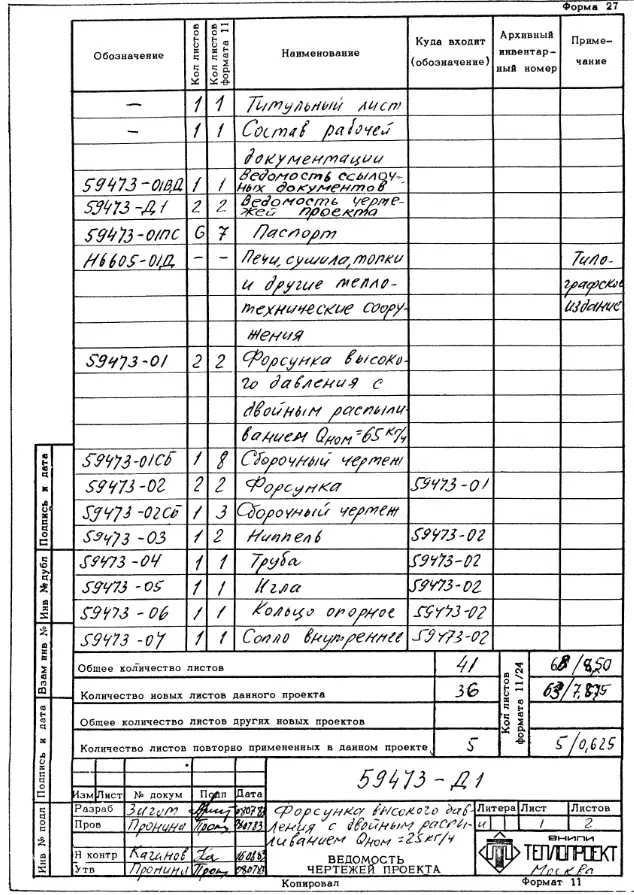 Форма 27
Обозначение | Кол листов | Кол листов формата 11 | Наименование | Куда входит (обозначение) | Архивный инвентар-ный номер | Приме-чание
— 1 1 Титульный лист
— 1 1 Состав рабочей
документации
59473-01ВД 1 1 Ведомость ссылоч-
ных документов
59473-Д1 2 2 Ведомость черте-
жей проекта
59473-01ПС 6 7 Паспорт
Н6605-01Д — — Печи, сушила, топки Типо-
и другие тепло- графское
технические соору- издание
жения
59473-01 2 2 Форсунка высоко-
го давления с
двойным распыли-
ванием Qном=65кг/ч
59473-01СБ 1 8 Сборочный чертеж
59473-02 2 2 Форсунка 59473-01
59473-02СБ 1 3 Сборочный чертеж
59473-03 1 2 Ниппель 59473-02
59473-04 1 1 Труба 59473-02
59473-05 1 1 Игла 59473-02
59473-06 1 1 Кольцо опорное 59473-02
59473-07 1 1 Сопло внутреннее 59473-02
Общее количество листов 41 /8,50
Количество новых листов данного проекта 36 63/7,875
Общее количество листов других новых проектов
Количество листов повторно примененных в данном проекте 5 5/0,625
Кол листов формата 11/24
Подпись и дата
Инв № дубл
Взам инв №
Подпись и дата
Инв № подл
59473-Д1
Изм Лист № докум Подп Дата
Разраб
Пров Пронина
Н контр Каганов
Утв Пронина
Форсунка высокого дав-
ления с двойным распы-
ливанием Qном=25кг/ч
ВЕДОМОСТЬ
ЧЕРТЕЖЕЙ ПРОЕКТА
Литера Лист Листов
и 1 2
ВНИПИ
ТЕПЛОПРОЕКТ
Москва
Копировал Формат 11